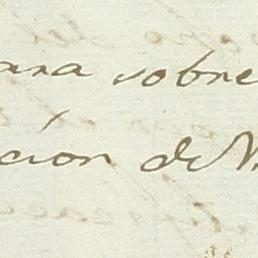 ara sobre
ción de